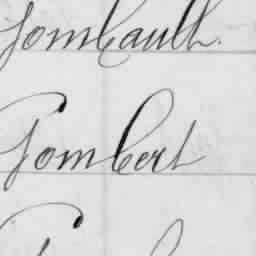 Gombault.
Gombert